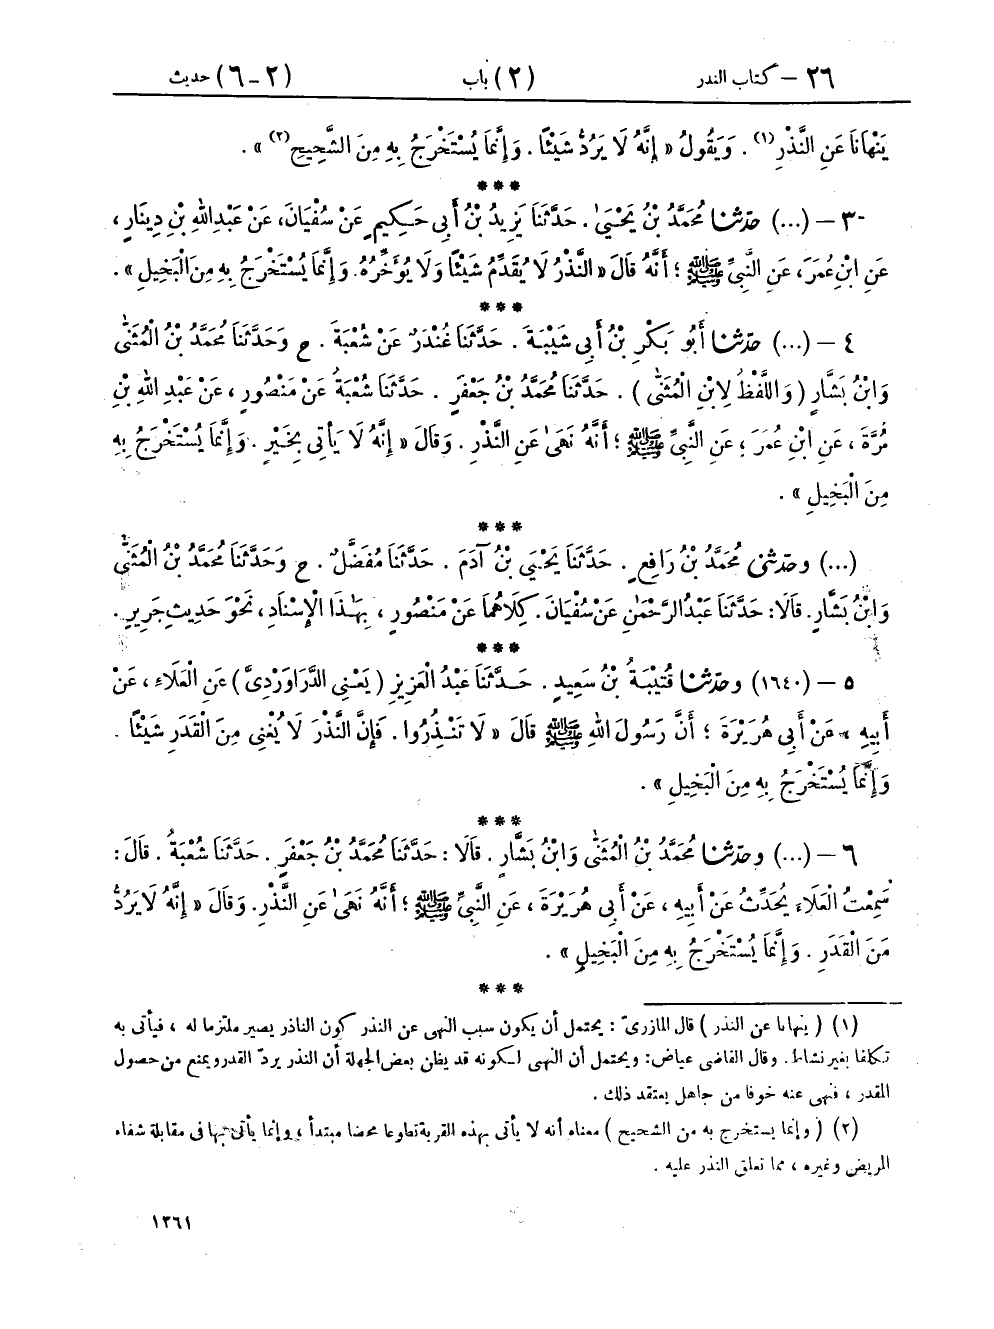 ٢٦ – كتاب النذر (٢) باب (٢-٦) حديث
يَنْهَانَا عَنِ النَّذْرِ(١) . وَيَقُولُ « إِنَّهُ لَا يَرُدُّ شَيْئًا . وَإِنَّمَا يُسْتَخْرَجُ بِهِ مِنَ الشَّحِيحِ(٢) » .
***
٣ – (...) حدّثنا مُحَمَّدُ بْنُ يَحْيَىٰ . حَدَّثَنَا يَزِيدُ بْنُ أَبِي حَكِيمٍ عَنْ سُفْيَانَ، عَنْ عَبْدِاللهِ بْنِ دِينَارٍ،
عَنِ ابْنِ عُمَرَ، عَنِ النَّبِيِّ ﷺ ؛ أَنَّهُ قَالَ « النَّذْرُ لَا يُقَدِّمُ شَيْئًا وَلَا يُؤَخِّرُهُ. وَإِنَّمَا يُسْتَخْرَجُ بِهِ مِنَ الْبَخِيلِ » .
***
٤ – (...) حدّثنا أَبُو بَكْرِ بْنُ أَبِي شَيْبَةَ . حَدَّثَنَا غُنْدَرٌ عَنْ شُعْبَةَ . ح وَحَدَّثَنَا مُحَمَّدُ بْنُ الْمُثَنَّىٰ
وَابْنُ بَشَّارٍ ( وَاللَّفْظُ لِابْنِ الْمُثَنَّىٰ ) . حَدَّثَنَا مُحَمَّدُ بْنُ جَعْفَرٍ . حَدَّثَنَا شُعْبَةُ عَنْ مَنْصُورٍ ، عَنْ عَبْدِ اللهِ بْنِ
مُرَّةَ ، عَنِ ابْنِ عُمَرَ ، عَنِ النَّبِيِّ ﷺ ؛ أَنَّهُ نَهَىٰ عَنِ النَّذْرِ . وَقَالَ « إِنَّهُ لَا يَأْتِي بِخَيْرٍ . وَإِنَّمَا يُسْتَخْرَجُ بِهِ
مِنَ الْبَخِيلِ » .
***
(...) وحدّثني مُحَمَّدُ بْنُ رَافِعٍ . حَدَّثَنَا يَحْيَىٰ بْنُ آدَمَ . حَدَّثَنَا مُفَضَّلٌ . ح وَحَدَّثَنَا مُحَمَّدُ بْنُ الْمُثَنَّىٰ
وَابْنُ بَشَّارٍ. قَالَا: حَدَّثَنَا عَبْدُالرَّحْمَٰنِ عَنْ سُفْيَانَ. كِلَاهُمَا عَنْ مَنْصُورٍ ، بِهَٰذَا الْإِسْنَادِ، نَحْوَ حَدِيثِ جَرِيرٍ.
***
٥ – (١٦٤٠) وحدّثنا قُتَيْبَةُ بْنُ سَعِيدٍ . حَدَّثَنَا عَبْدُ الْعَزِيزِ ( يَعْنِي الدَّرَاوَرْدِيَّ ) عَنِ الْعَلَاءِ ، عَنْ
أَبِيهِ ، عَنْ أَبِي هُرَيْرَةَ ؛ أَنَّ رَسُولَ اللهِ ﷺ قَالَ « لَا تَنْذِرُوا . فَإِنَّ النَّذْرَ لَا يُغْنِي مِنَ الْقَدَرِ شَيْئًا .
وَإِنَّمَا يُسْتَخْرَجُ بِهِ مِنَ الْبَخِيلِ » .
***
٦ – (...) وحدّثنا مُحَمَّدُ بْنُ الْمُثَنَّىٰ وَابْنُ بَشَّارٍ . قَالَا : حَدَّثَنَا مُحَمَّدُ بْنُ جَعْفَرٍ . حَدَّثَنَا شُعْبَةُ . قَالَ :
سَمِعْتُ الْعَلَاءَ يُحَدِّثُ عَنْ أَبِيهِ ، عَنْ أَبِي هُرَيْرَةَ ، عَنِ النَّبِيِّ ﷺ ؛ أَنَّهُ نَهَىٰ عَنِ النَّذْرِ. وَقَالَ « إِنَّهُ لَا يَرُدُّ
مِنَ الْقَدَرِ . وَإِنَّمَا يُسْتَخْرَجُ بِهِ مِنَ الْبَخِيلِ » .
***
(١) ( ينهانا عن النذر ) قال المازريّ : يحتمل أن يكون سبب النهى عن النذر كون الناذر يصير ملتزما له ، فيأتى به
تكلفا بغير نشاط. وقال القاضى عياض: ويحتمل أن النهى لكونه قد يظن بعض الجهلة أن النذر يردّ القدر ويمنع من حصول
المقدر ، فنهى عنه خوفا من جاهل يعتقد ذلك .
(٢) ( وإنما يستخرج به من الشحيح ) معناه أنه لا يأتى بهذه القربة تطوعا محضا مبتدأ ، وإنما يأتى بها فى مقابلة شفاء
المريض وغيره ، مما تعلق النذر عليه .
١٢٦١